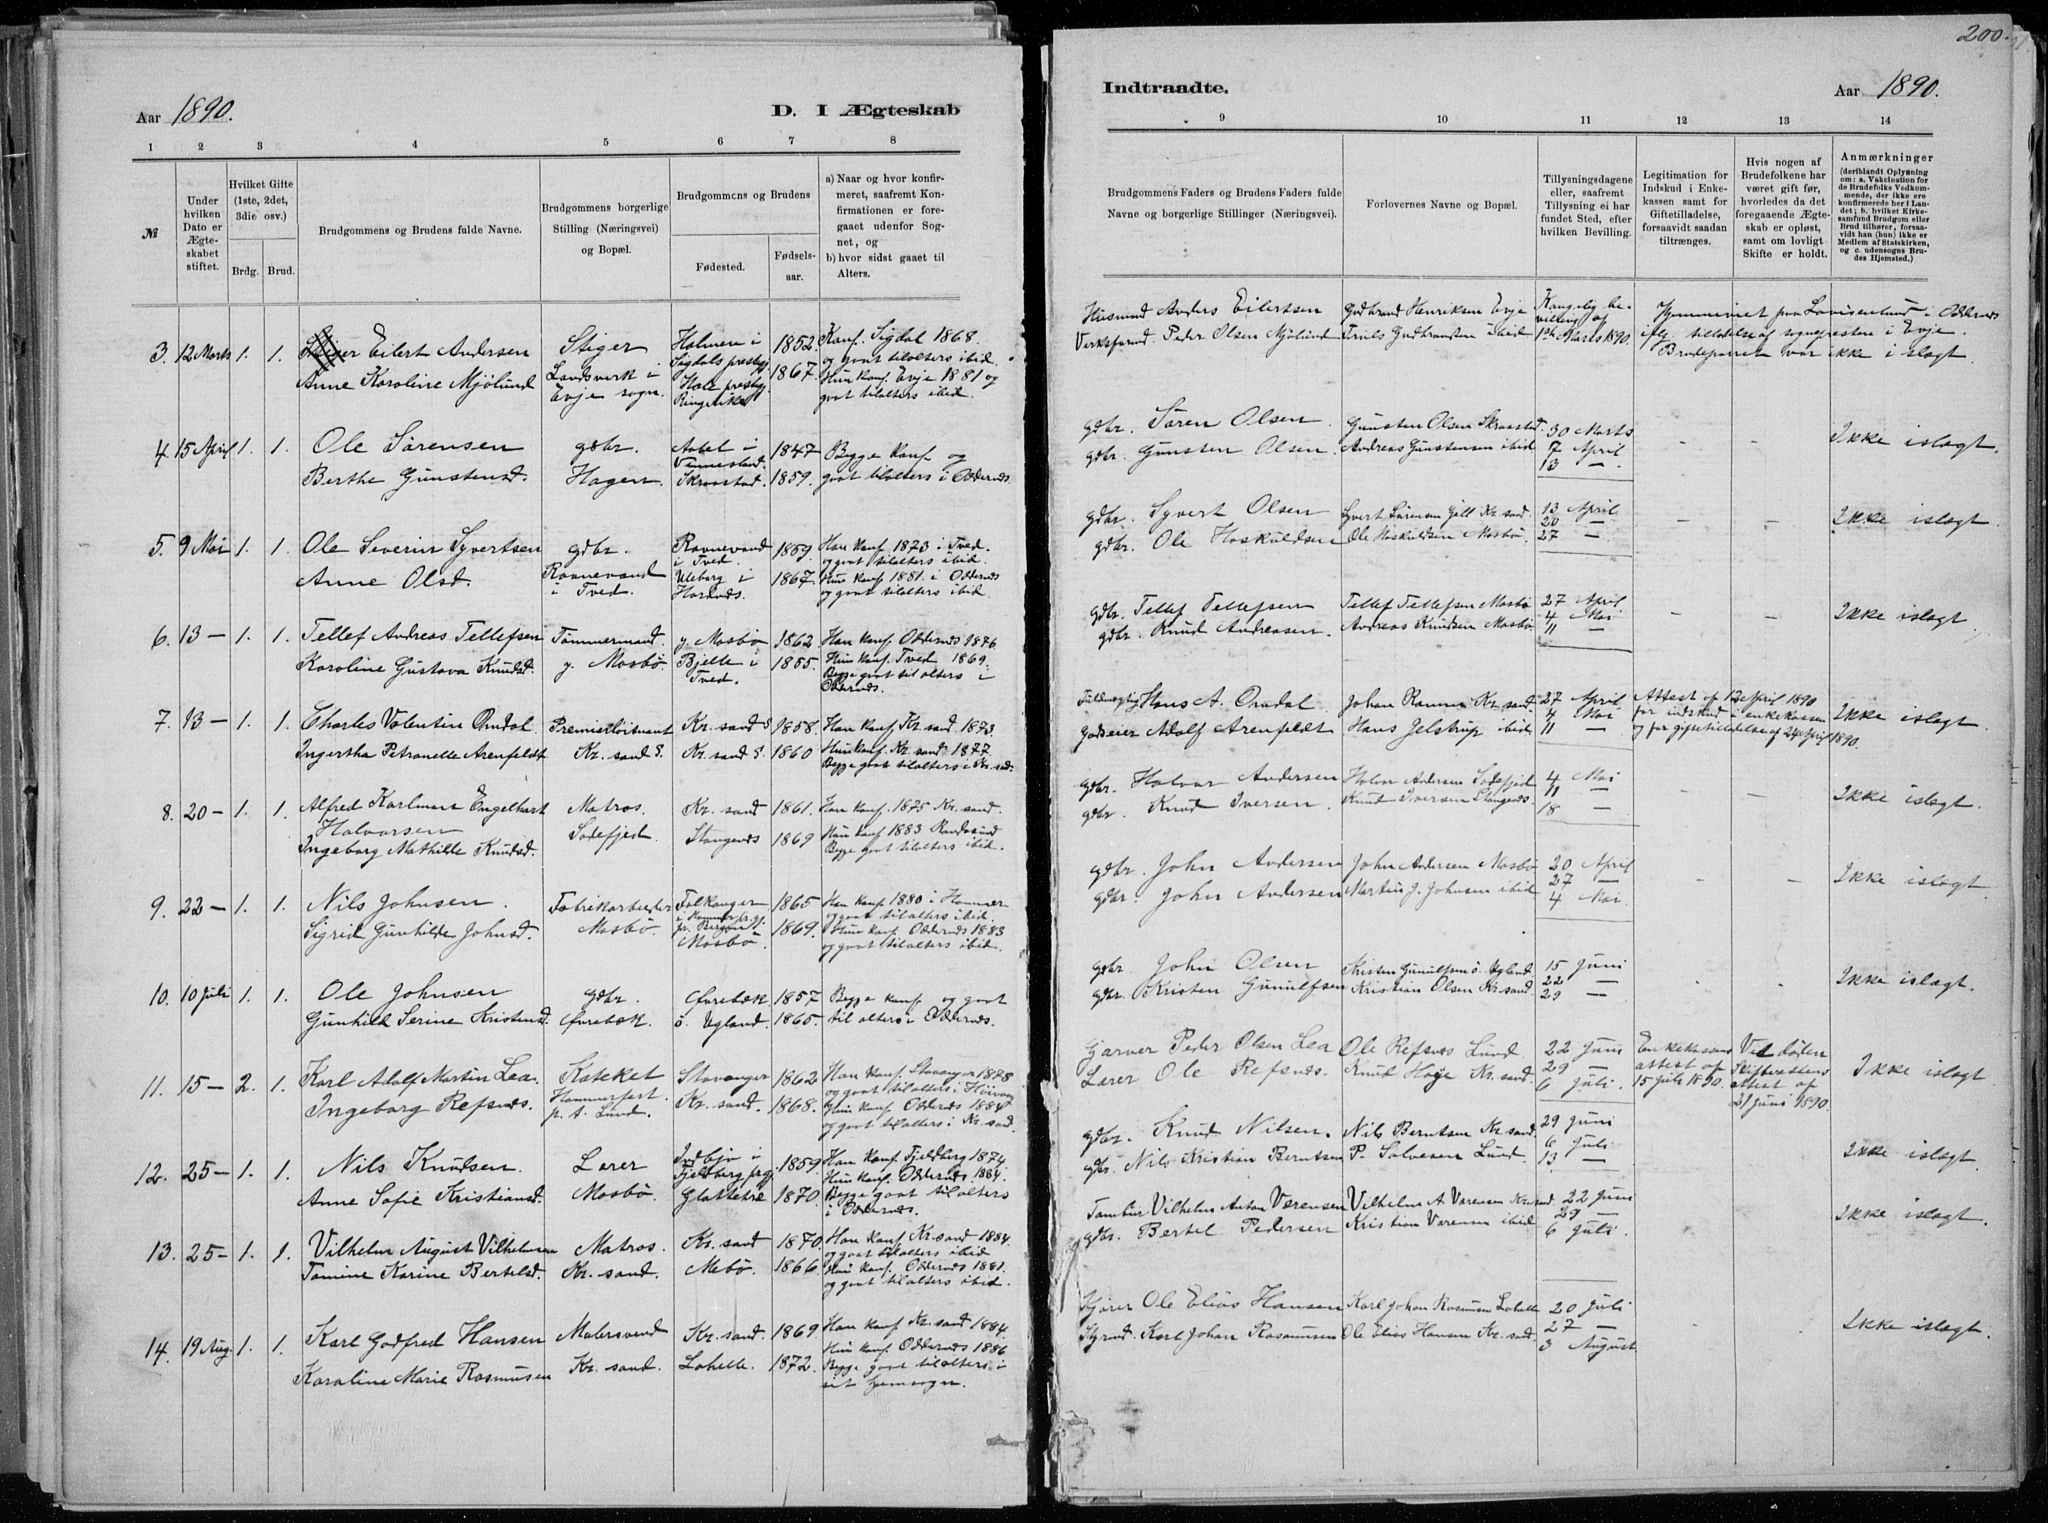 Aar 1890.
D. I Ægteskab
1 2 3 4 5 6 7 8
№
Under hvilken Dato er Ægteskabet stiftet.
Hvilket Gifte (1ste, 2det, 3die osv.)
Brdg. Brud.
Brudgommens og Brudens fulde Navne.
Brudgommens borgerlige Stilling (Næringsvei) og Bopæl.
Brudgommens og Brudens
Fødested. Fødselsaar.
a) Naar og hvor konfirmeret, saafremt Konfirmationen er foregaaet udenfor Sognet, og
b) hvor sidst gaaet til Alters.
3. 12 Marts 1. 1. Eilert Andersen Stiger Holmen i 1852. Konf. Sigdal 1868.
Anne Karoline Mjølund Landsverk i Sigdals prestgj. 1867. og gaat tilalters ibid.
Evje sogn. Hole prestgj. Hun konf. Evje 1881 og
Ringerike gaat tilalters ibid.
4. 15 April 1. 1. Ole Sørensen gdbr. Aabel i 1847 Begge konf. og
Vennesland.
Berthe Gunstensd. Hagen. Skraastad. 1859. gaat tilalters i Oddernes.
5. 9 Mai 1. 1. Ole Severin Syvertsen gdbr. Ravnevand 1859. Han konf. 1873 i Tved.
i Tved. og gaat tilalters ibid.
Anne Olsd. Ravnevand Uleberg i 1867. Hun konf. 1881. i Oddernes
i Tved. Hornnes. og gaat tilalters ibid.
6. 13 — 1. 1. Tellef Andreas Tellefsen Tømmermand. y. Mosbø 1862 Han konf. Oddernes 1876.
Karoline Gustava Knudsd. y. Mosbø. Bjelle i 1855. Hun konf. Tved 1869.
Tved. Begge gaat til alters i
Oddernes.
7. 13 — 1. 1. Charles Valentin Omdal Premierløitnant Kr. sand S 1858. Han konf. Kr. sand. 1873.
Ingertha Petronelle Arenfeldt Kr. sand S. Kr. sand S. 1860 Hun konf. Kr. sand 1877.
Begge gaat tilalters i Kr. sand.
8. 20 — 1. 1. Alfred Karlman Engelhart Matros. Kr. sand 1861. Han konf. 1875 Kr. sand.
Halvorsen Sodefjed Stangenes 1869 Hun konf 1883 Randøsund
Ingeborg Mathilde Knudsd. Begge gaat tilalters ibid.
9. 22 — 1. 1. Nils Johnsen. Fabrikarbeider Falkanger 1865 Han konf 1880 i Hammer
i Hammer prgj. og gaat tilalters ibid.
Sigrid Gunhilde Johnsd. Mosbø. pr. Bergen 1869. Hun konf. Oddernes 1883
Mosbø. og gaat tilalters ibid
10. 10 Juli 1. 1. Ole Johnsen gdbr. Øvrebøk 1857 Begge konf. og gaat
Gunhild Serine Kristensd. Øvrebøk. ö. Ugland. 1865. til alters i Oddernes.
11. 15 — 2. 1. Karl Adolf Martin Lea. Kateket Stavanger 1862 Han konf. Stavanger 1878
Hammerfest og gaat tilalters i Høivaag
Ingeborg Refsnes. p. t. Lund. Kr. sand. 1868. Hun konf. Oddernes 1884
og gaat tilalters i Kr. sand.
12. 25 — 1. 1. Nils Knudsen. Lærer Indbjo i 1859 Han konf. Fjeldberg 1874
Fjeldberg prgj. Hun konf. Oddernes 1884.
Anne Sofie Kristiansd. Mosbø. Glattetre 1870. Begge gaat tilalters
i Oddernes.
13. 25 — 1. 1. Vilhelm August Vilhelmsen Matros. Kr. sand 1870. Han konf. Kr. sand 1884.
og gaat tilalters ibid
Tomine Karine Bertelsd. Kr. sand. Mebø. 1866. Hun konf. Oddernes 1881.
og gaat tilalters ibid.
14. 19 Aug. 1. 1. Karl Godfred Hansen Malersvend Kr. sand. 1869 Han konf Kr. sand 1884.
Hun konf Oddernes 1886
Karoline Marie Rasmusen Kr. sand. Lahelle. 1872. Begge gaat tilalters i
sit hjemsogn.
200.
Indtraadte.
Aar 1890.
9 10 11 12 13 14
Brudgommens Faders og Brudens Faders fulde Navne og borgerlige Stillinger (Næringsvei).
Forlovernes Navne og Bopæl.
Tillysningsdagene eller, saafremt Tillysning ei har fundet Sted, efter hvilken Bevilling.
Legitimation for Indskud i Enkekassen samt for Giftetilladelse, forsaavidt saadan tiltrænges.
Hvis nogen af Brudefolkene har været gift før, hvorledes da det foregaaende Ægteskab er opløst, samt om lovligt Skifte er holdt.
Anmærkninger (deriblandt Oplysning om: a. Vakcination for de Brudefolks Vedkommende, der ikke ere konfirmerede her i Landet; b. hvilket Kirkesamfund Brudgom eller Brud tilhører, forsaavidt han (hun) ikke er Medlem af Statskirken, og c. udensogns Brudes Hjemsted.)
Husmand Anders Eilertsen Gudbrand Henriksen Evje Kongelig be- Hjemmeviet paa Lovisenlund i Oddernes
villing af
Verksformd. Peder Olsen Mjølund Truls Gudbrandsen ibid 1ste Marts 1890. iflg. tilladelse af sognepresten i Evje.
Brudeparret var ikke i slægt.
gdbr. Søren Olsen. Gunsten Olsen Skraastad. 30 Marts - - Ikke islægt.
gdbr. Gunsten Olsen. Andreas Gunstensen ibid 7 April
13 —
gdbr. Syvert Olsen Syvert Sørensen Gill Kr. sand 13 April - - Ikke islægt.
20 —
gdbr. Ole Hoskuldsen Ole Hoskuldsen Mosbø. 27 —
gdbr. Tellef Tellefsen Tellef Tellefsen Mosbø 27 April - - Ikke islægt.
4 Mai
gdbr. Knud Andreasen. Andreas Knudsen Mosbø 11 —
Fuldmægtig Hans A. Omdal. Johan Ramm Kr. sand. 27 April Attest af 12 April 1890
4 Mai for indskud i enkekassen Ikke islægt.
Godseier Adolf Arenfeldt Hans Jelstrup ibid 11 — og for giftetilladelse af 24 April 1890.
gdbr. Halvor Andersen Halvor Andersen Sodefjed 4 Mai - - Ikke islægt.
11 —
gdbr. Knud Iversen. Knud Iversen Stangenes 18 —
gdbr. John Andersen John Andersen Mosbø 20 April - - Ikke islægt.
27 —
gdbr. John Andersen Martin J. Johnsen ibid 4 Mai.
gdbr. John Olsen Kristen Gunulfsen ö. Ugland. 15 Juni - - Ikke islægt.
22 —
gdbr. Kristen Gunulfsen Kristian Olsen Kr. sand. 29 —
Garver Peder Olsen Lea Ole Refsnes Lund 22 Juni Enkekassens Ved døden
29 — attest af Skifterettens Ikke islægt.
Lærer Ole Refsnes. Knud Høye Kr. sand. 6 Juli. 15 Juli 1890. attest af
21 Juni 1890.
gdbr. Knud Nilsen. Nils Berntsen Kr. sand. 29 Juni
6 Juli Ikke islægt.
gdbr. Nils Kristian Berntsen P. Salvesen Lund. 13 —
Tambur Vilhelm Anton Værensen Vilhelm A Værensen Kr. sand. 22 Juni
29 — Ikke islægt.
gdbr. Bertel Pedersen Kristian Værensen ibid 6 Juli.
Kjører Ole Elias Hansen Karl Johan Rasmusen Lahelle 20 Juli
27 — Ikke islægt.
Styrmd. Karl Johan Rasmusen Ole Elias Hansen Kr. sand. 3 August